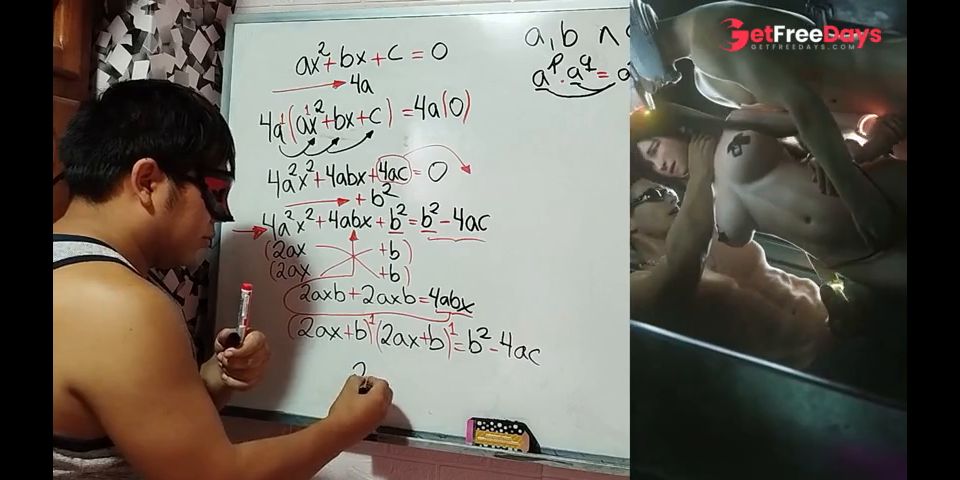 ax²+bx+c=0
4a
4a¹(a¹x²+bx+c)=4a(0)
4a²x²+4abx+4ac=0
+b²
4a²x²+4abx+b²=b²-4ac
(2ax +b)
(2ax +b)
2axb+2axb=4abx
(2ax+b)¹(2ax+b)¹=b²-4ac
2
a, b
aᵖ·a^q=a
GetFreeDays
GETFREEDAYS.COM